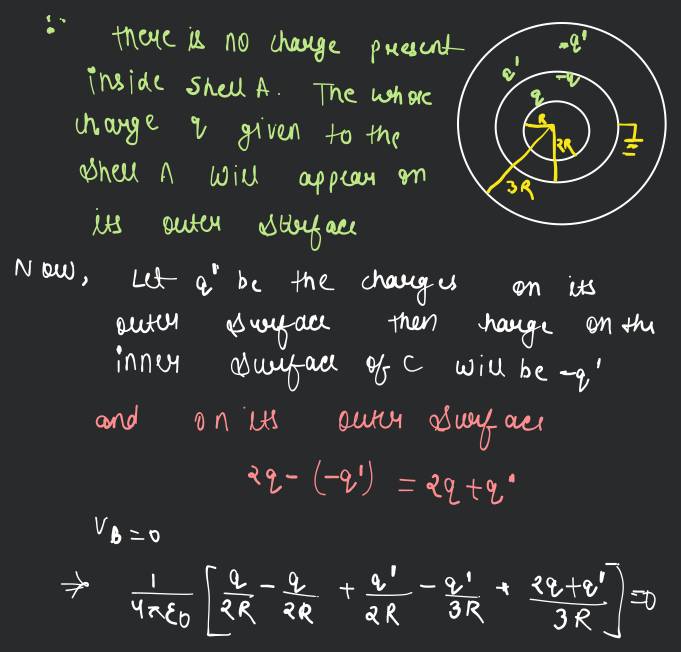 ∵ there is no charge present
inside shell A. The whole
charge q given to the
shell A will appear on
its outer surface
-q'
q'
-q
q
R
2R
3R
Now, Let q' be the charges on its
outer surface then harge on the
inner surface of C will be -q'
and on its outer surface
2q - (-q') = 2q + q'
V_B = 0
⇒ 1/4πε0 [ q/2R - q/2R + q'/2R - q'/3R + 2q+q'/3R ] = 0